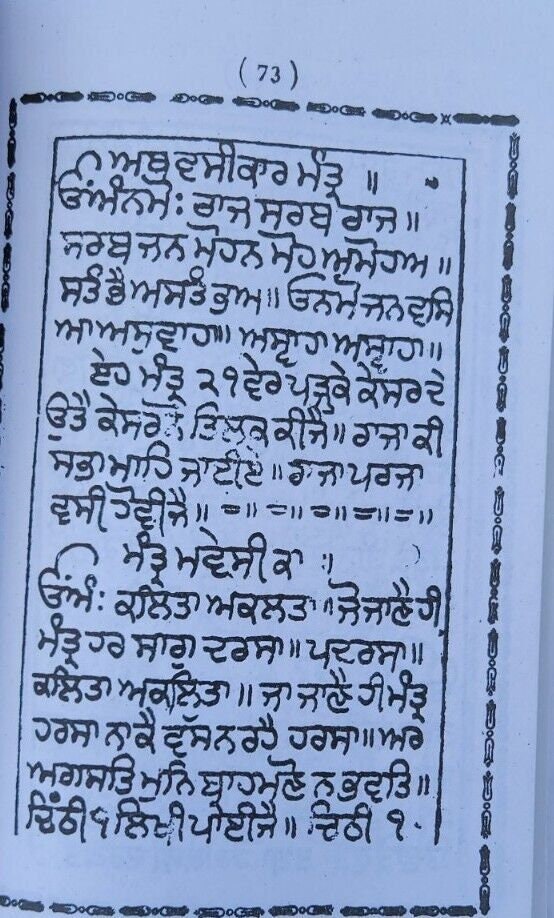 ( 73 )
ਅਥ ਵਸੀਕਾਰ ਮੰਤ੍ਰ ॥
ਓਅੰਨਮੋः ਰਾਜ ਸਰਬ ਰਾਜ ॥
ਸਰਬ ਜਨ ਮੋਹਨ ਮੋਹ ਅਮੋਹਅ ॥
ਸਤੰ ਭੈ ਅਸਤੰ ਭੁਅ ॥ ਓਨਮੋ ਜਨ ਵਸਿ
ਆ ਅਸੁਵਾਹਾ ॥ ਅਸ੍ਵਾਹਾ ਅਸ੍ਵਾਹਾ ॥
ਏਹ ਮੰਤ੍ਰ ੨੧ ਵੇਰ ਪੜ੍ਹਕੇ ਕੇਸਰ ਦੇ
ਉਤੈ ਕੇਸਰ ਤਿਲਕ ਕੀਜੈ ॥ ਰਾਜਾ ਕੀ
ਸਭਾ ਮਾਹਿ ਜਾਈਏ ॥ ਰਾਜਾ ਪਰਜਾ
ਵਸੀ ਹੋਵੀਜੈ ॥ = ॥ = ॥ = ॥ = ॥ = ॥
ਮੰਤ੍ਰ ਮਵੇਸੀ ਕਾ ॥
ਓਅੰः ਕਲਿਤਾ ਅਕਲਤਾ ॥ ਜੋ ਜਾਣੈ ਹੀ
ਮੰਤ੍ਰ ਹਰ ਸਾਗੁ ਦਰਸਾ ॥ ਪਦਰਸਾ ॥
ਕਲਿਤਾ ਅਕਲਿਤਾ ॥ ਜਾ ਜਾਣੈ ਹੀ ਮੰਤ੍ਰ
ਹਰਸਾ ਨਾਕੈ ਵੱਸ ਨ ਰਹੈ ਹਰਸਾ ॥ ਅਰ
ਅਗਸਤਿ ਮੁਨਿ ਬ੍ਰਾਹਮਣੋ ਨ ਭਵਤਿ ॥
ਚਿੰਠੀ ੧ ਲਿਖੀ ਪਾਈਜੈ ॥ ਚਿਠੀ ੧